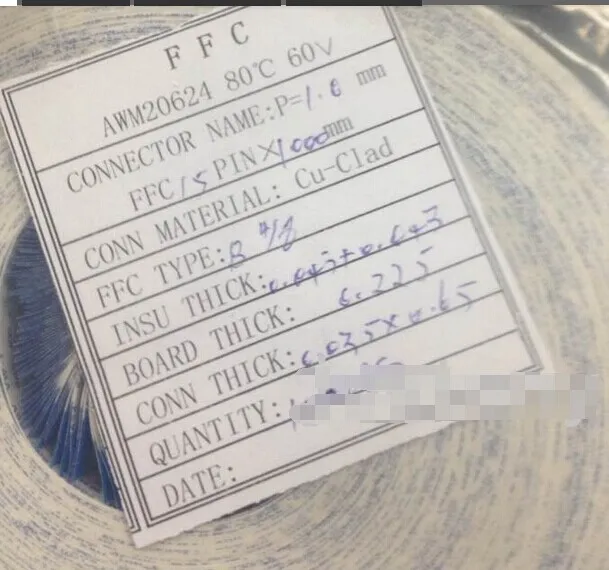 F F C
AWM20624 80℃ 60V
CONNECTOR NAME:P=1.0 mm
FFC 15 PIN×1000mm
CONN MATERIAL: Cu-Clad
FFC TYPE:B
INSU THICK:0.043+0.043
BOARD THICK: 0.225
CONN THICK:0.035×0.65
QUANTITY:
DATE: